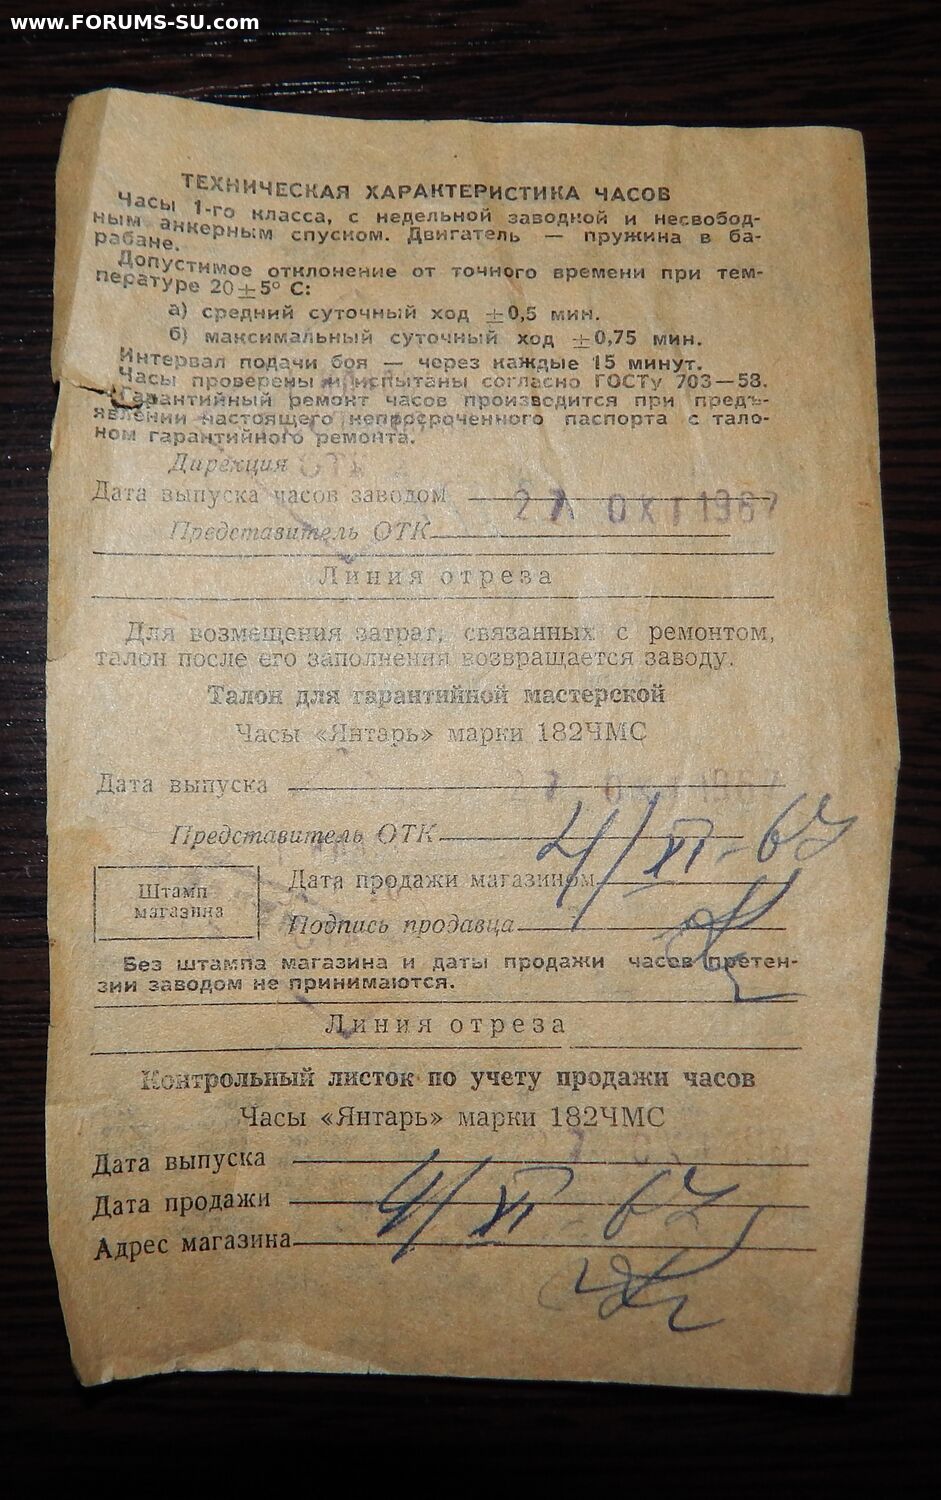 www.FORUMS-SU.com
ТЕХНИЧЕСКАЯ ХАРАКТЕРИСТИКА ЧАСОВ
Часы 1-го класса, с недельной заводкой и несвобод-
ным анкерным спуском. Двигатель — пружина в ба-
рабане.
Допустимое отклонение от точного времени при тем-
пературе 20±5° С:
а) средний суточный ход ±0,5 мин.
б) максимальный суточный ход ±0,75 мин.
Интервал подачи боя — через каждые 15 минут.
Часы проверены и испытаны согласно ГОСТу 703—58.
Гарантийный ремонт часов производится при предъ-
явлении настоящего непросроченного паспорта с тало-
ном гарантийного ремонта.
Дирекция
Дата выпуска часов заводом 27 ОКТ 1967
Представитель ОТК
Линия отреза
Для возмещения затрат, связанных с ремонтом,
талон после его заполнения возвращается заводу.
Талон для гарантийной мастерской
Часы «Янтарь» марки 182ЧМС
Дата выпуска
Представитель ОТК
Штамп
магазина
Дата продажи магазином 4/XI-67
Подпись продавца
Без штампа магазина и даты продажи часов претен-
зии заводом не принимаются.
Линия отреза
Контрольный листок по учету продажи часов
Часы «Янтарь» марки 182ЧМС
Дата выпуска
Дата продажи 4/XI-67
Адрес магазина